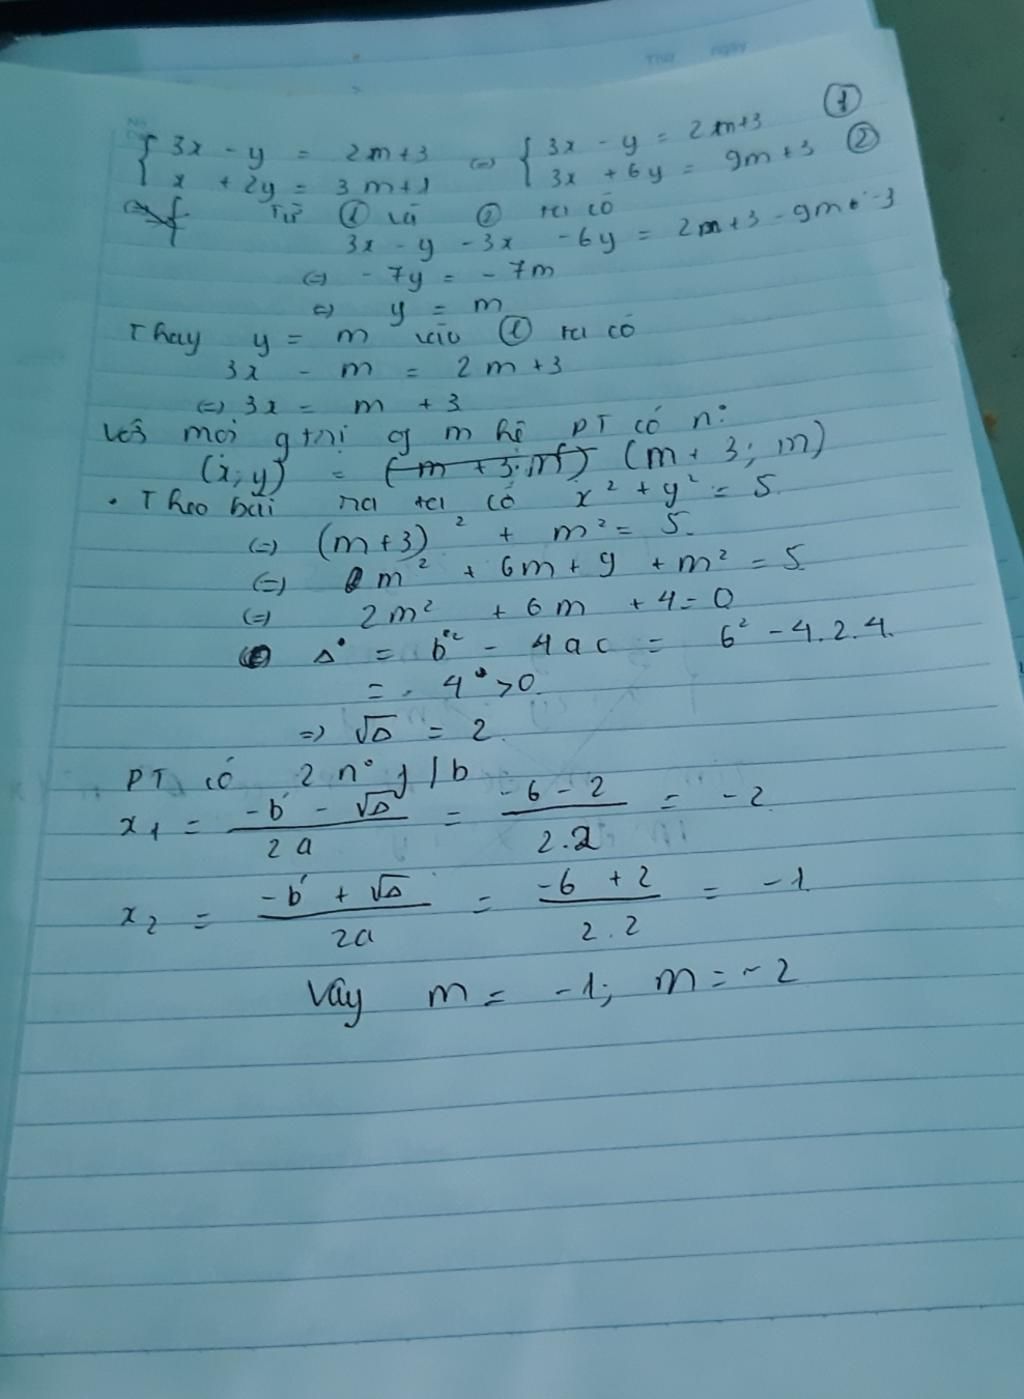 { 3x - y = 2m+3 (=) { 3x - y = 2m+3 ①
x + 2y = 3m+1 3x + 6y = 9m+3 ②
Từ ① và ② ta có
3x - y - 3x - 6y = 2m+3 - 9m - 3
(=) - 7y = - 7m
(=) y = m
Thay y = m vào ① ta có
3x - m = 2m+3
(=) 3x = m + 3
Với mọi gtrị of m hệ PT có n°
(x;y) = (m+3;m) (m+3; m)
• Theo bài ra ta có x² + y² = 5
(=) (m+3)² + m² = 5.
(=) m² + 6m + 9 + m² = 5
(=) 2m² + 6m + 4 = 0
Δ = b² - 4ac = 6² - 4.2.4.
= 4 > 0
=) √Δ = 2.
PT có 2 n° f/b
x₁ = (-b - √Δ)/(2a) = (-6 - 2)/(2.2) = -2
x₂ = (-b + √Δ)/(2a) = (-6 + 2)/(2.2) = -1
Vậy m = -1; m = -2